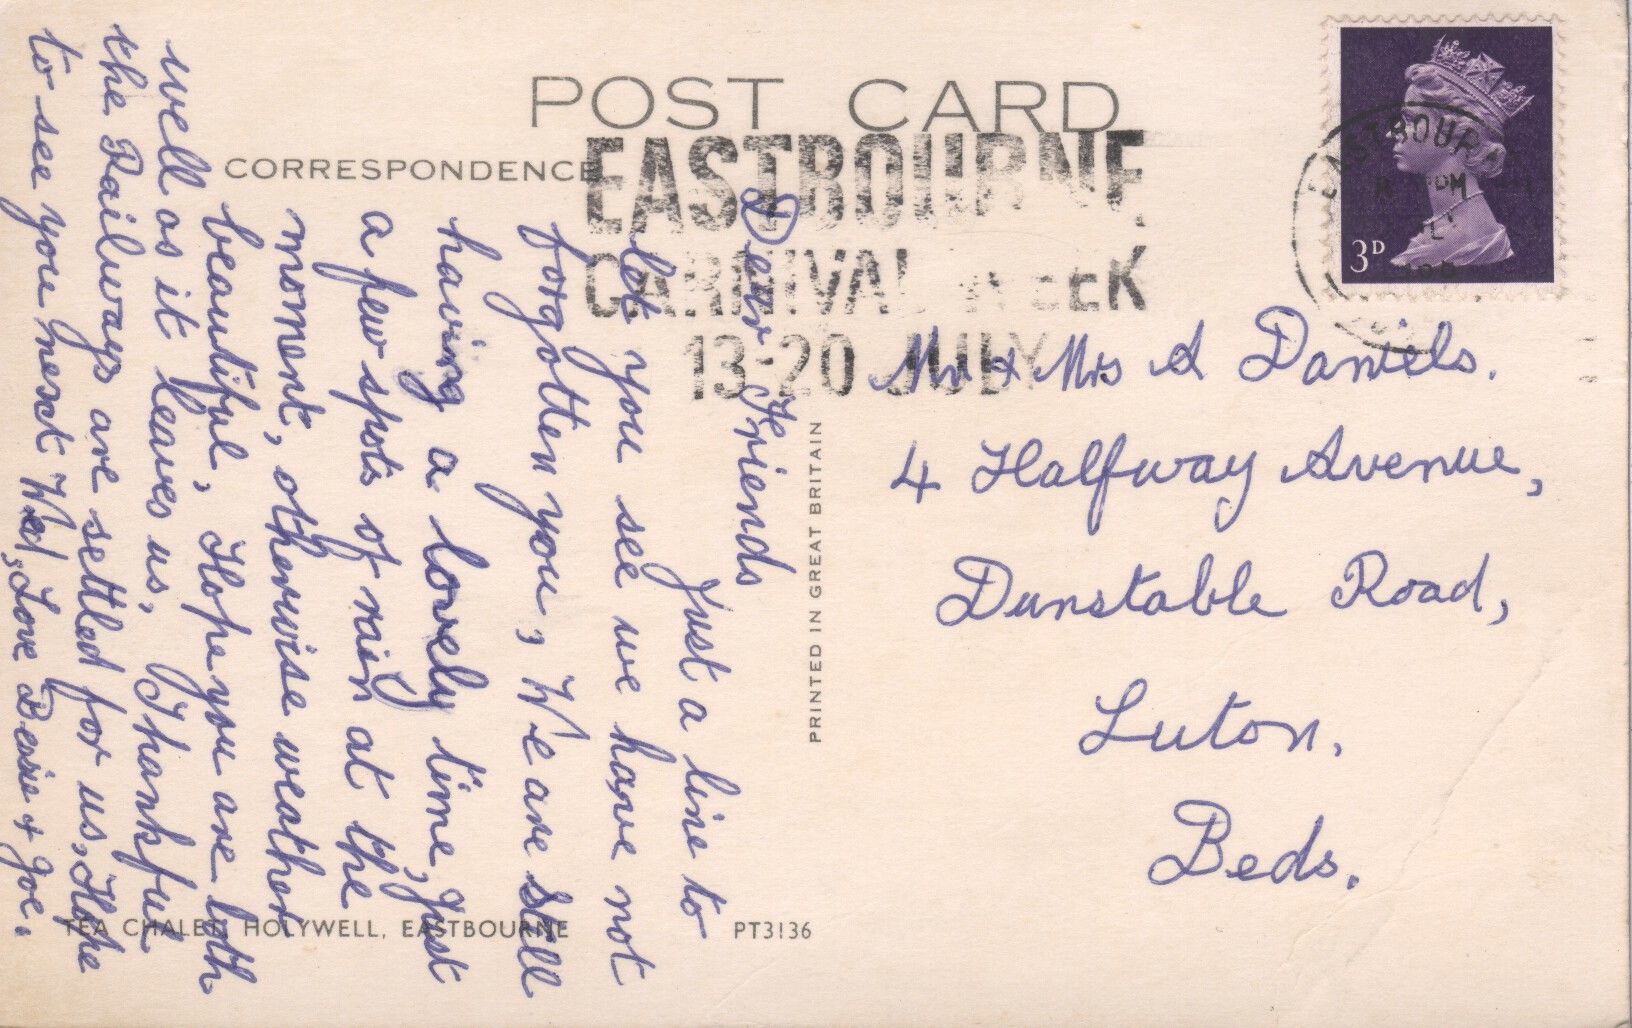 POST CARD
CORRESPONDENCE
EASTBOURNE
CARNIVAL WEEK
13-20 JULY
EASTBOURN
PM
3D
Dear Friends
Just a line to
let you see we have not
forgotten you, We are still
having a lovely time, Just
a few spots of rain at the
moment, otherwise weather
beautiful, Hope you are both
well as it leaves us, Thankful
the Railways are settled for us, Hope
to see you next Wed, Love Bessie & Joe.
PRINTED IN GREAT BRITAIN
Mr & Mrs A Daniels.
4 Halfway Avenue,
Dunstable Road,
Luton,
Beds.
TEA CHALET, HOLYWELL, EASTBOURNE
PT3136